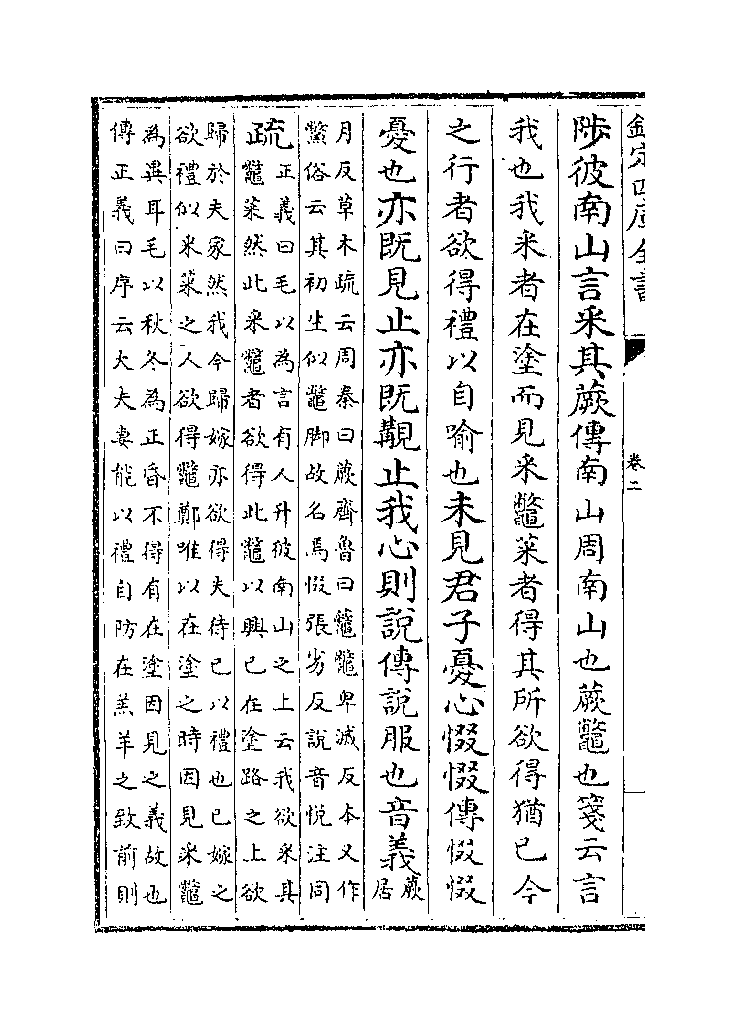 欽定四庫全書
卷二
陟彼南山言采其蕨傳南山周南山也蕨鼈也箋云言
我也我采者在塗而見采鼈菜者得其所欲得猶已今
之行者欲得禮以自喻也未見君子憂心惙惙傳惙惙
憂也亦既見止亦既覯止我心則說傳說服也音義蕨
居
月反草木疏云周秦曰蕨齊魯曰虌鼈卑滅反本又作
鱉俗云其初生似鼈脚故名焉惙張劣反說音悅注同
疏正義曰毛以為言有人升彼南山之上云我欲采其
鼈菜然此采鼈者欲得此鼈以興已在塗路之上欲
歸於夫家然我今歸嫁亦欲得夫待已以禮也已嫁之
欲禮似采菜之人欲得鼈鄭唯以在塗之時因見采鼈
為異耳毛以秋冬為正昏不得有在塗因見之義故也
傳正義曰序云大夫妻能以禮自防在羔羊之致前則